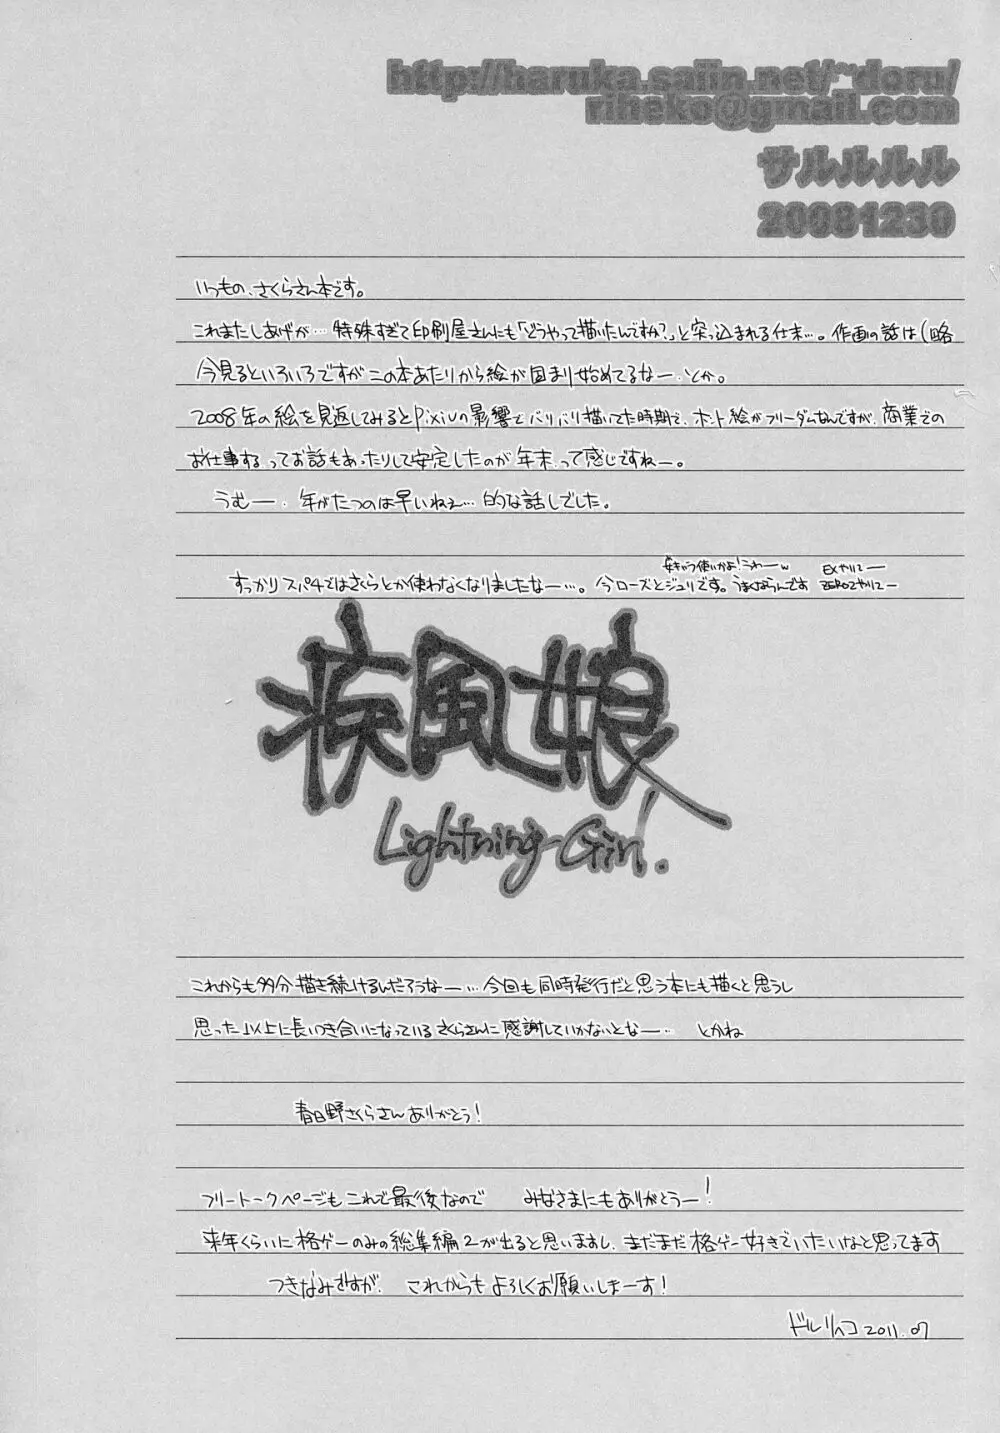 http://haruka.saiin.net/~doru/
riheko@gmail.com
サルルルル
20081230
いつもの、さくらさん本です。
これまたしあげが…特殊すぎて印刷屋さんにも「どうやって描いたんですか?」と突っ込まれる仕末…。作画の話は(略
今見るといろいろですがこの本あたりから絵が固まり始めてるなー、とか。
2008年の絵を見返してみるとpixivの影響でバリバリ描いてた時期で、ホント絵がフリーダムなんですが、商業での
お仕事するってお話もあったりして安定したのが年末、って感じですねー。
うむー、年がたつのは早いねぇ…的な話しでした。
女キャラ使いかよ!こわーw
すっかりスパ4ではさくらとか使わなくなりましたなー…。今ローズとジュリです。うまくならんです
EXやりてー
ZERO2やりてー
疾風娘
Lightning-Girl.
これからも多分描き続けるんだろうなー…今回も同時発行だと思う本にも描くと思うし
思った以上に長いつき合いになっているさくらさんに感謝していかないとなー… とかね
春日野さくらさんありがとう!
フリートークページもこれで最後なので みなさまにもありがとうー!
来年くらいに格ゲーのみの総集編2が出ると思いますし、まだまだ格ゲー好きでいたいなと思ってます
つきなみですが、これからもよろしくお願いしまーす!
ドルリヘコ 2011.07